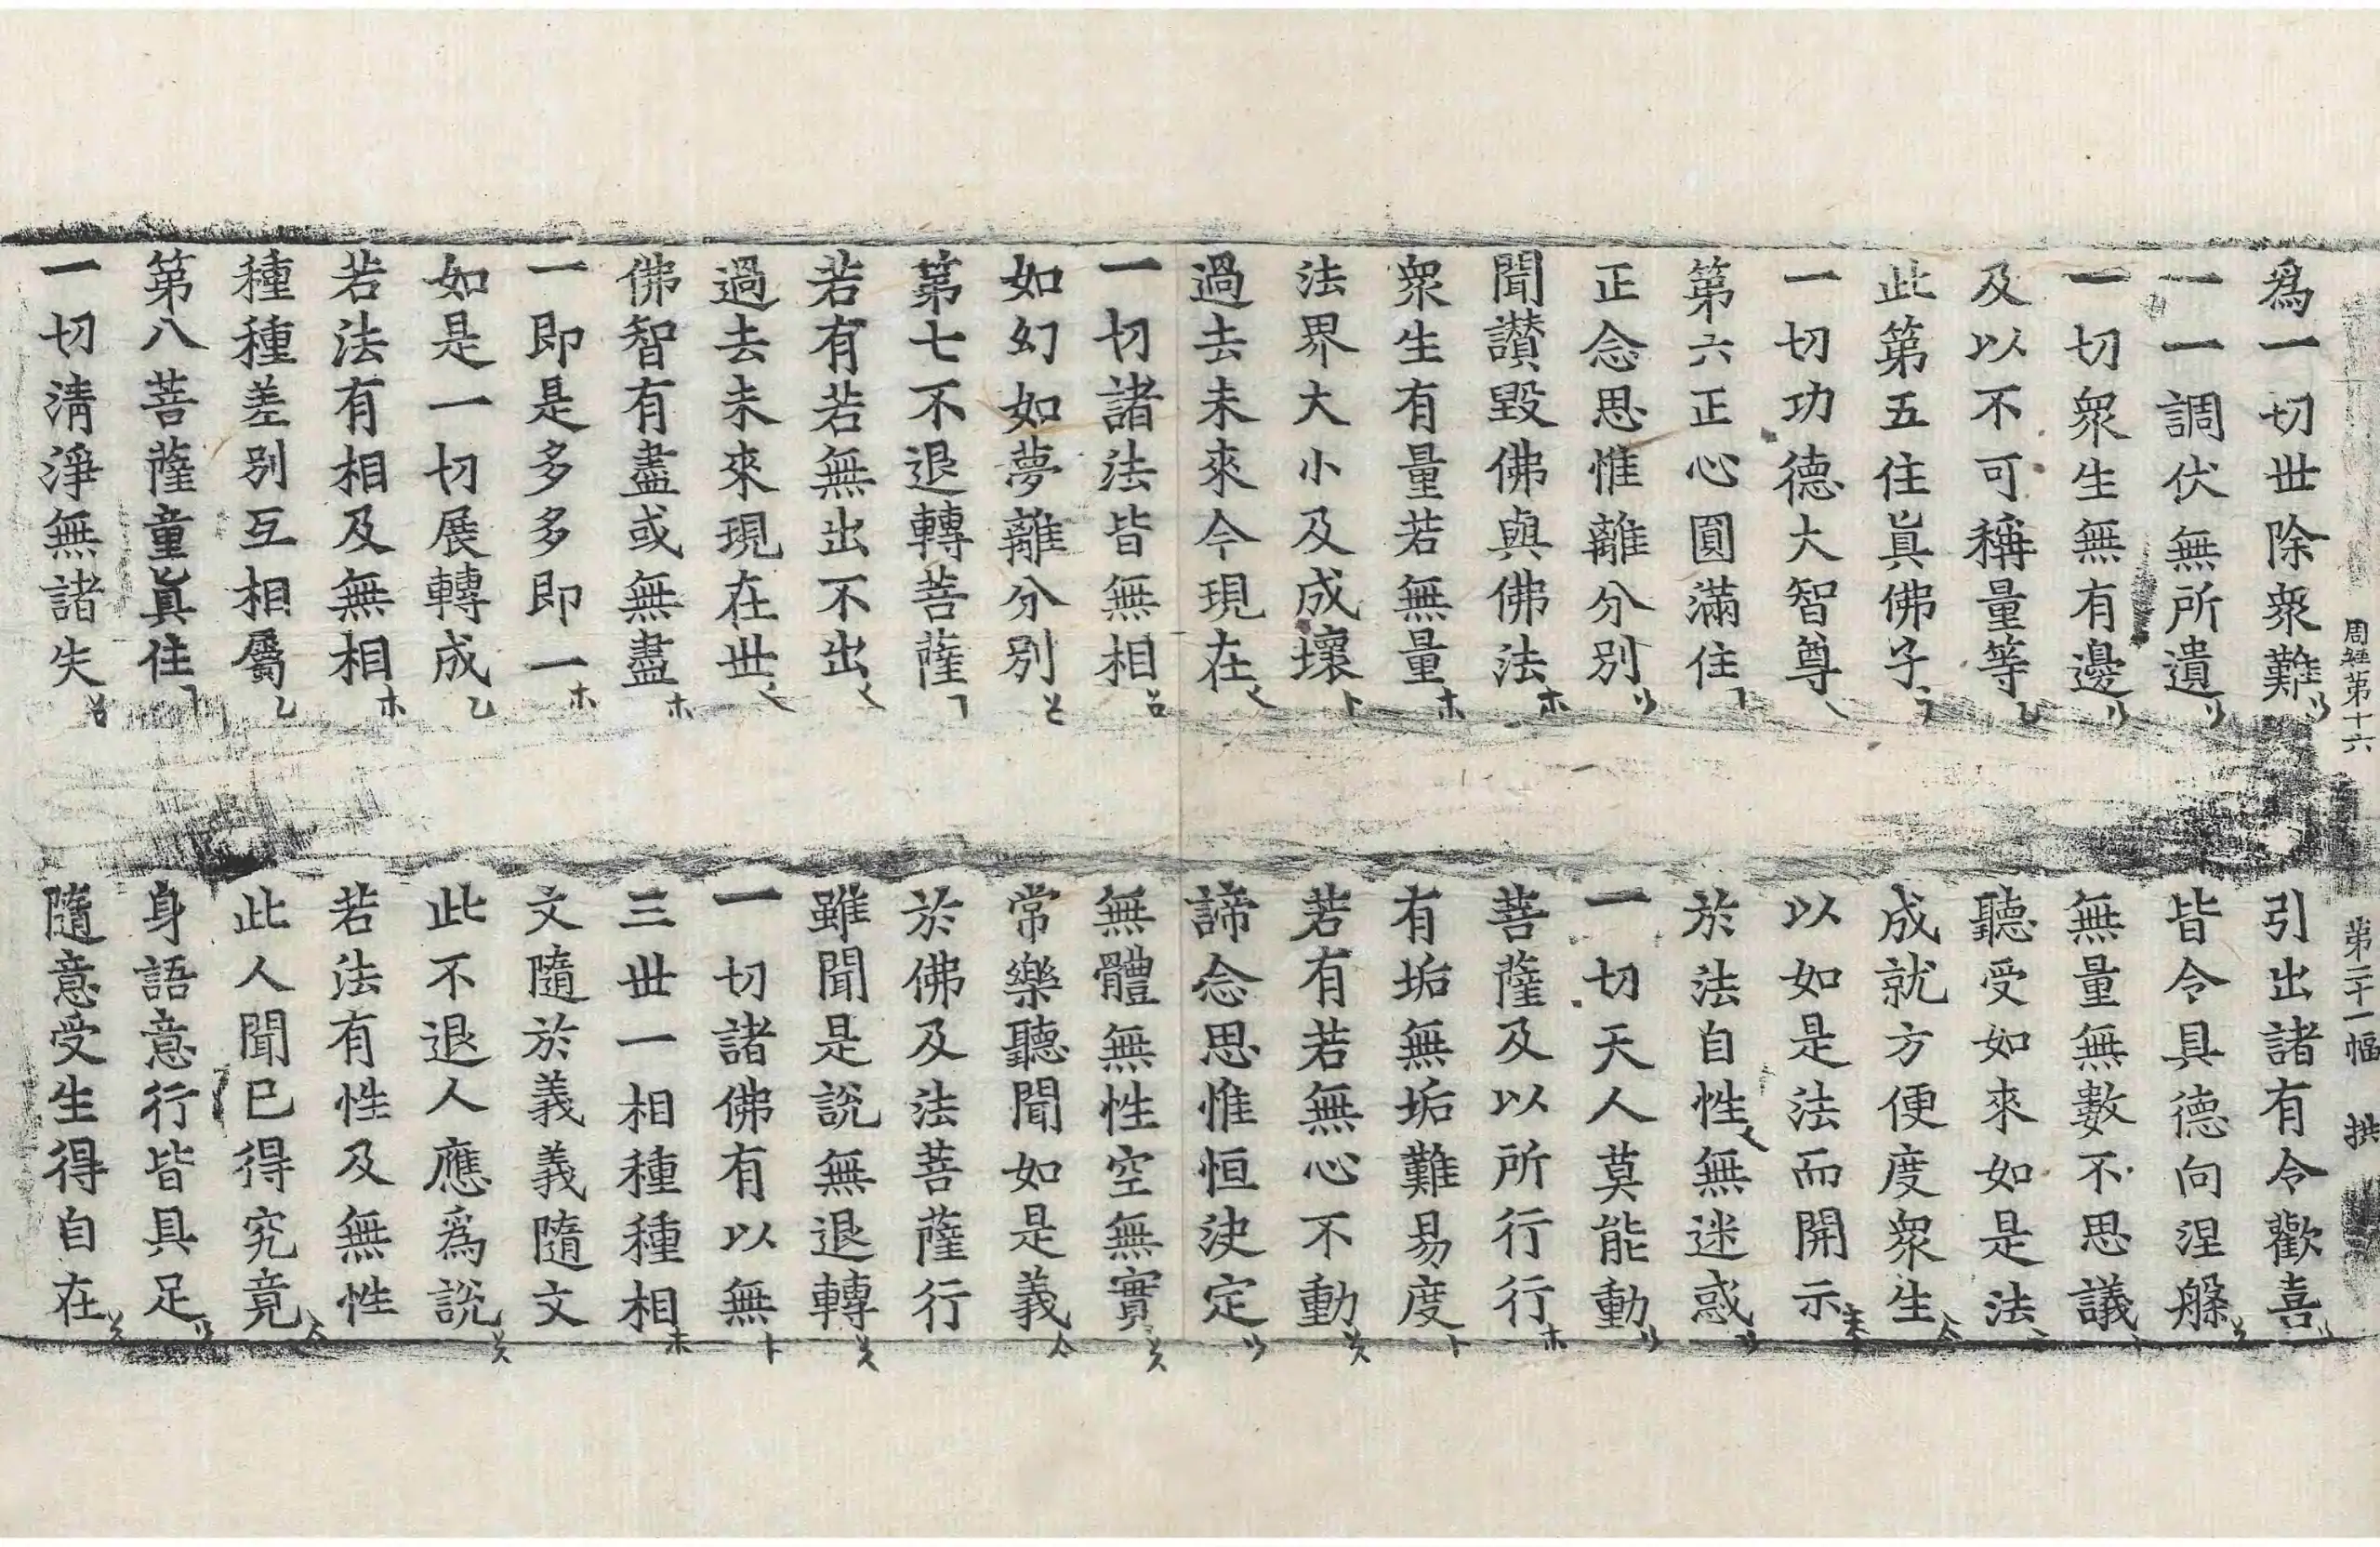 周經第十六 第二十一幅 拱
爲一切世除衆難 引出諸有令歡喜
一一調伏無所遺 皆令具德向涅槃
一切衆生無有邊 無量無數不思議
及以不可稱量等 聽受如來如是法
此第五住眞佛子 成就方便度衆生
一切功德大智尊 以如是法而開示
第六正心圓滿住 於法自性無迷惑
正念思惟離分別 一切天人莫能動
聞讃毀佛與佛法 菩薩及以所行行
衆生有量若無量 有垢無垢難易度
法界大小及成壞 若有若無心不動
過去未來今現在 諦念思惟恒決定
一切諸法皆無相 無體無性空無實
如幻如夢離分別 常樂聽聞如是義
第七不退轉菩薩 於佛及法菩薩行
若有若無出不出 雖聞是說無退轉
過去未來現在世 一切諸佛有以無
佛智有盡或無盡 三世一相種種相
一即是多多即一 文隨於義義隨文
如是一切展轉成 此不退人應爲說
若法有相及無相 若法有性及無性
種種差別互相屬 此人聞已得究竟
第八菩薩童眞住 身語意行皆具足
一切淸淨無諸失 隨意受生得自在